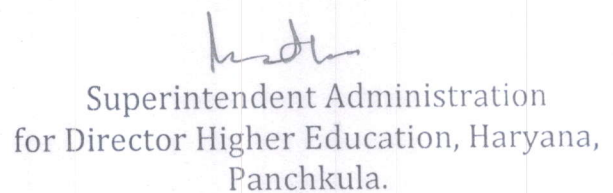 Superintendent Administration
for Director Higher Education, Haryana,
Panchkula.